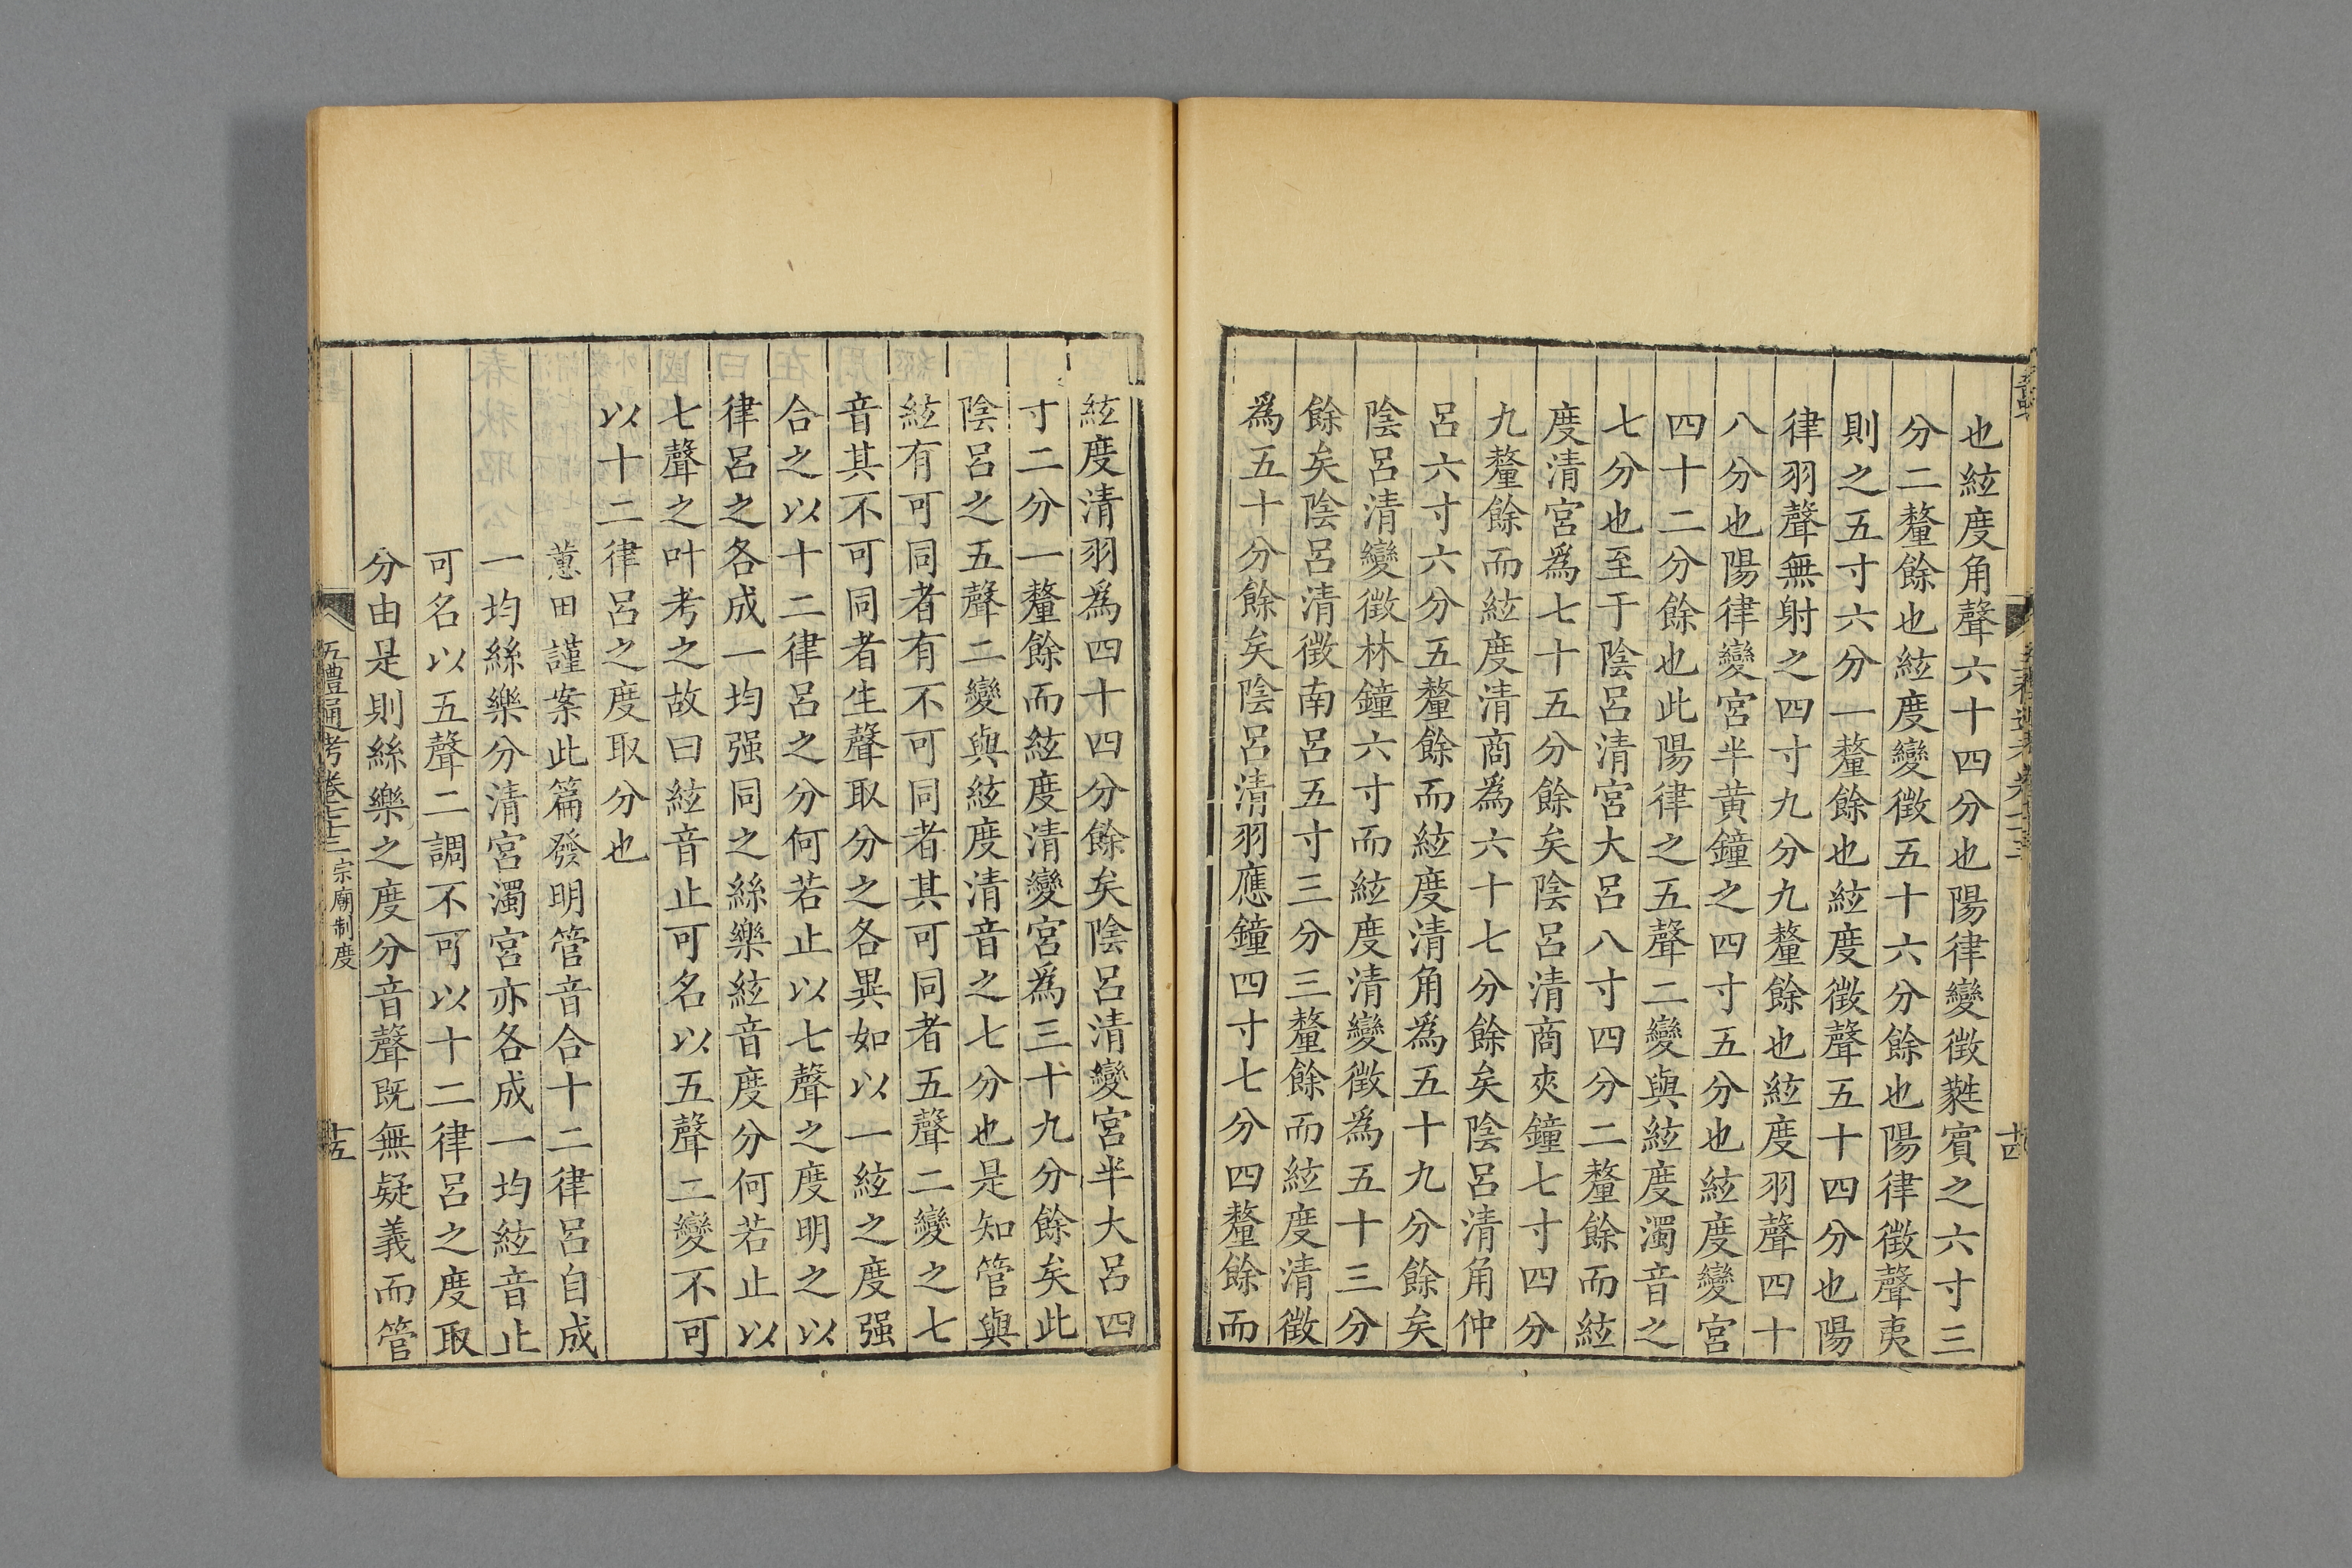 也絃度角聲六十四分也陽律變徵蕤賓之六寸三
分二釐餘也絃度變徵五十六分餘也陽律徵聲夷
則之五寸六分一釐餘也絃度徵聲五十四分也陽
律羽聲無射之四寸九分九釐餘也絃度羽聲四十
八分也陽律變宮半黄鐘之四寸五分也絃度變宮
四十二分餘也此陽律之五聲二變與絃度濁音之
七分也至于陰呂清宮大呂八寸四分二釐餘而絃
度清宮爲七十五分餘矣陰呂清商夾鐘七寸四分
九釐餘而絃度清商爲六十七分餘矣陰呂清角仲
呂六寸六分五釐餘而絃度清角爲五十九分餘矣
陰呂清變徵林鐘六寸而絃度清變徵爲五十三分
餘矣陰呂清徵南呂五寸三分三釐餘而絃度清徵
爲五十分餘矣陰呂清羽應鐘四寸七分四釐餘而
十四
絃度清羽爲四十四分餘矣陰呂清變宮半大呂四
寸二分一釐餘而絃度清變宮爲三十九分餘矣此
陰呂之五聲二變與絃度清音之七分也是知管與
絃有可同者有不可同者其可同者五聲二變之七
音其不可同者生聲取分之各異如以一絃之度强
合之以十二律呂之分何若止以七聲之度明之以
律呂之各成一均强同之絲樂絃音度分何若止以
七聲之叶考之故曰絃音止可名以五聲二變不可
以十二律呂之度取分也
蕙田謹案此篇發明管音合十二律呂自成
一均絲樂分清宮濁宮亦各成一均絃音止
可名以五聲二調不可以十二律呂之度取
分由是則絲樂之度分音聲既無疑義而管
五禮通考卷七十三 宗廟制度
十五